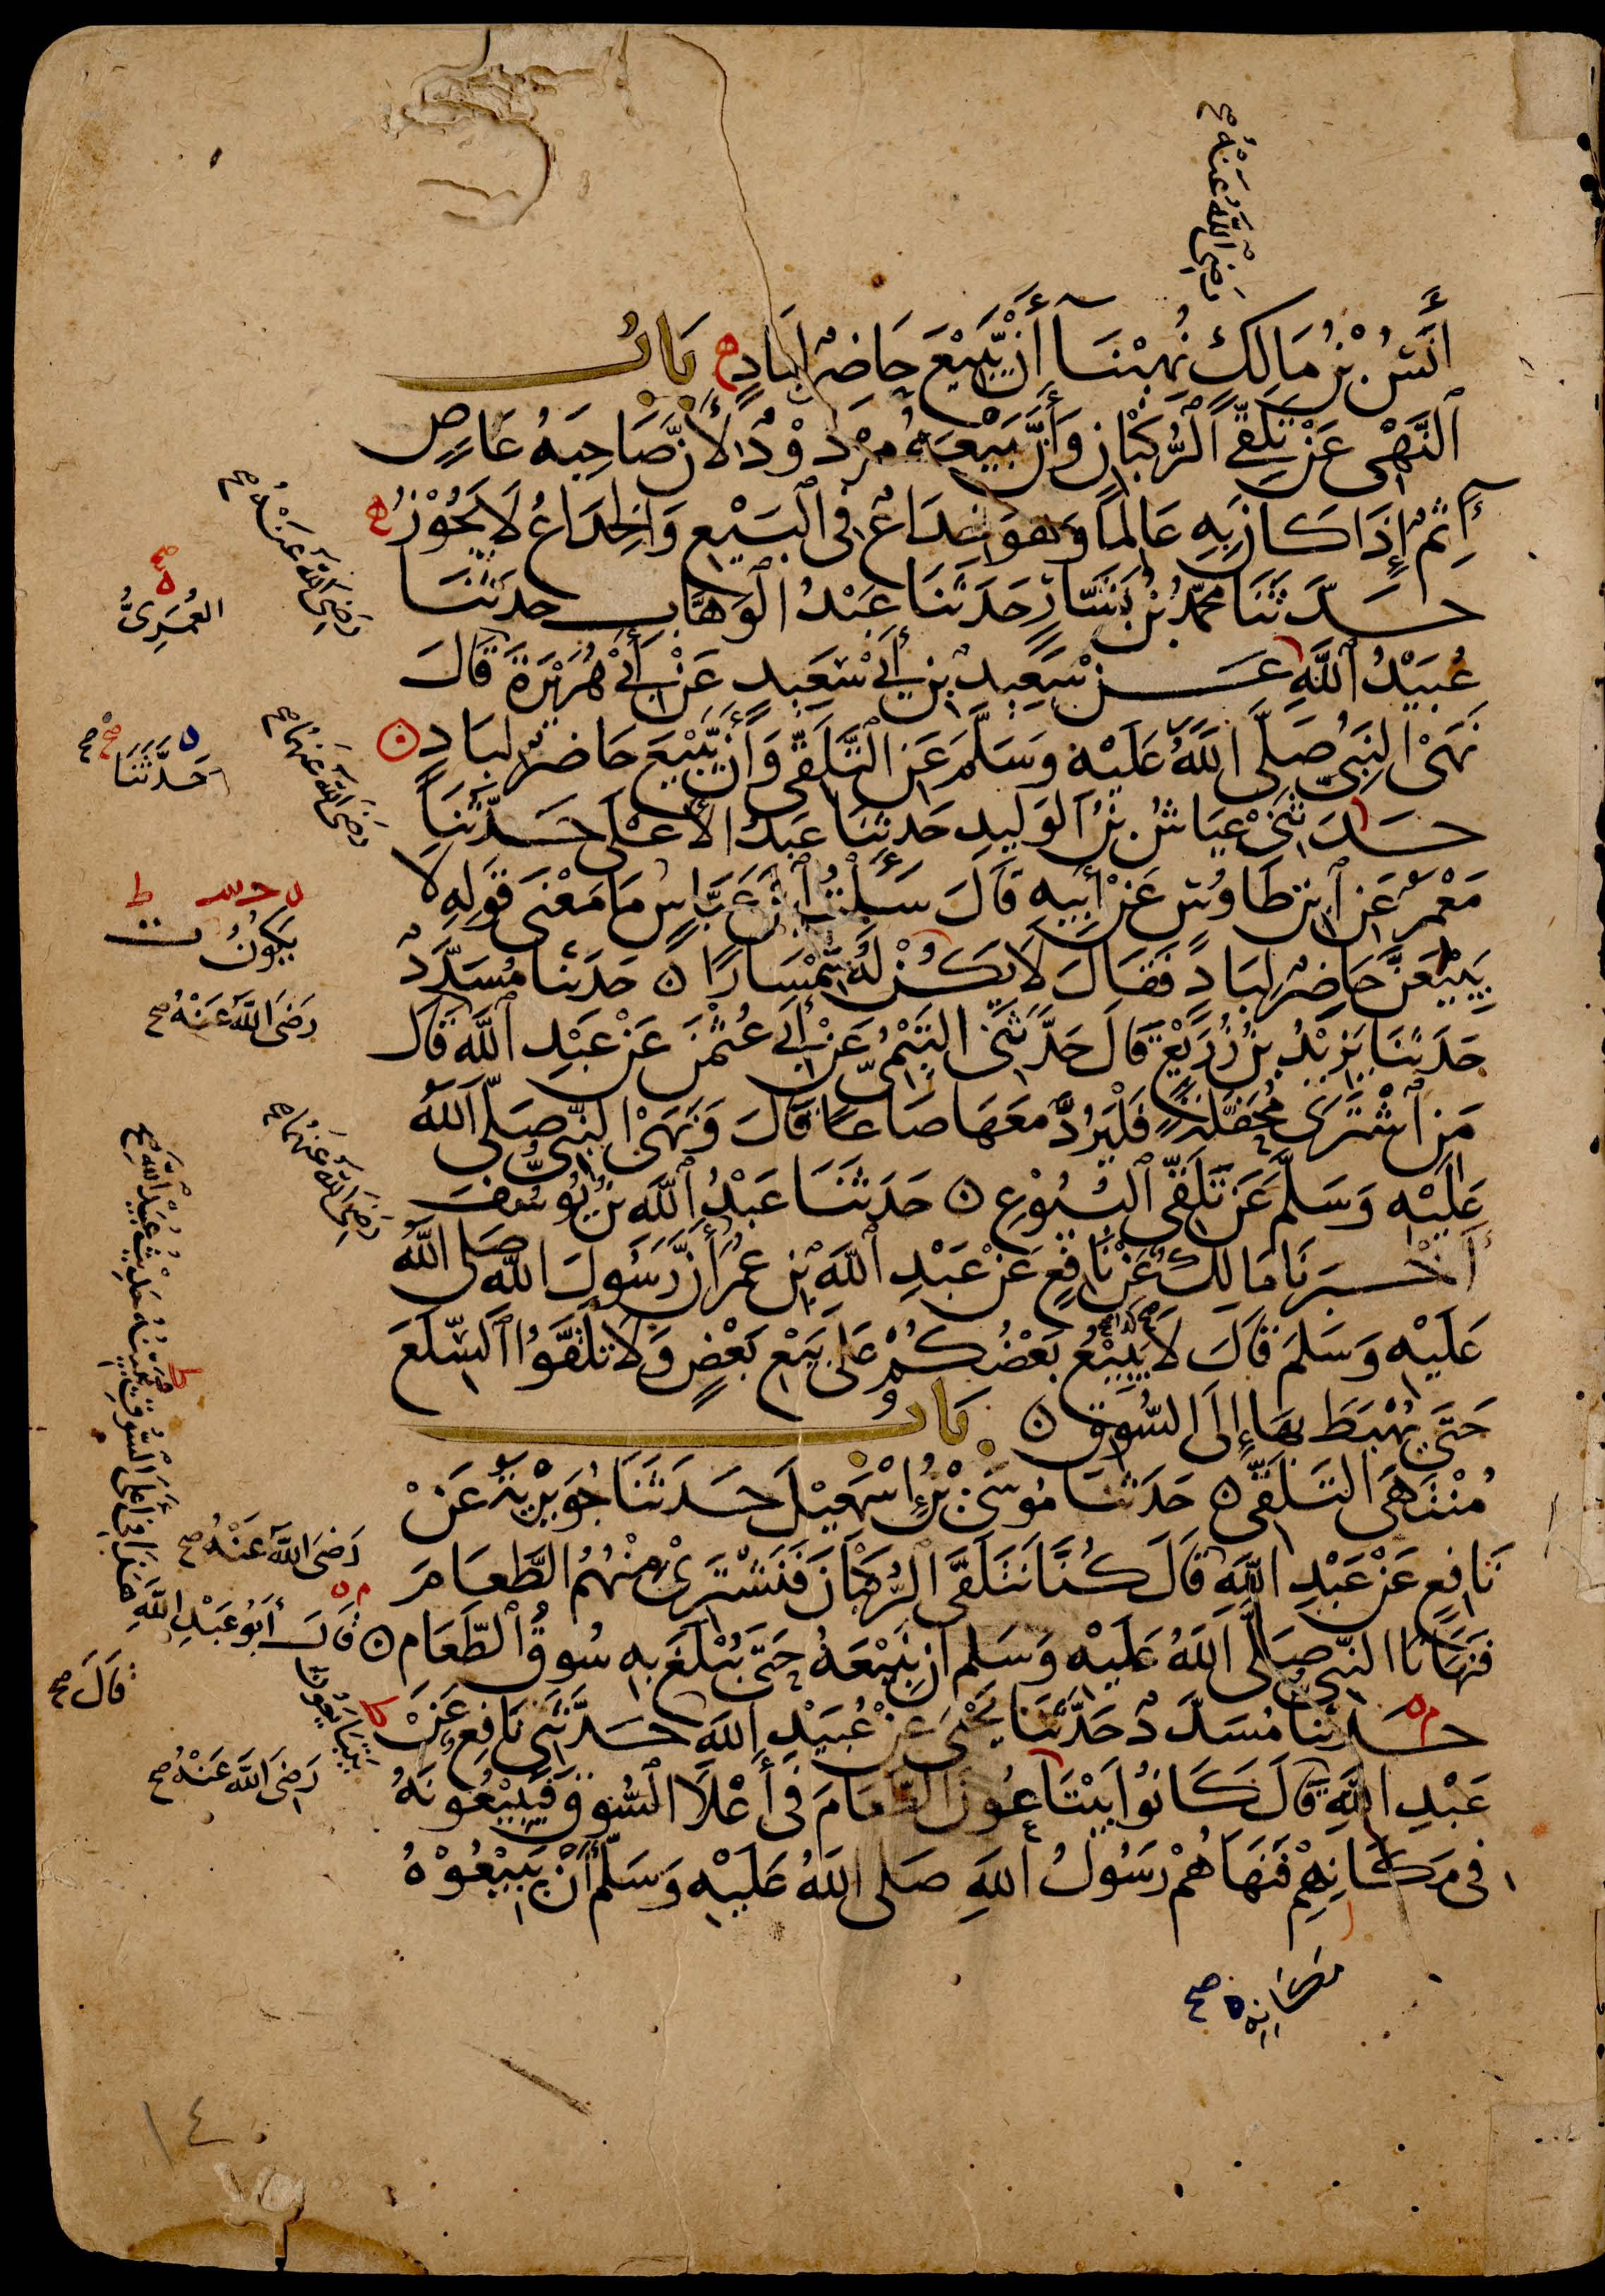 أَنَسُ بْنُ مَالِكٍ نُهِينَا أَنْ يَبِيْعَ حَاضِرٌ لِبَادٍ بَابُ
النَّهْيِ عَنْ تَلَقِّي الرُّكْبَانِ وَأَنَّ بَيْعَهُ مَرْدُوْدٌ لِأَنَّ صَاحِبَهُ عَاصٍ
آثِمٌ إِذَا كَانَ بِهِ عَالِمًا وَهُوَ خِدَاعٌ فِي الْبَيْعِ وَالْخِدَاعُ لَا يَجُوْزُ
حَدَّثَنَا مُحَمَّدُ بْنُ بَشَّارٍ حَدَثَنَا عَبْدُ الْوَهَّابِ حدَثَنَا
عُبَيْدُ اللَّهِ عَنْ سَعِيدِ بْنِ أَبِي سَعِيدٍ عَنْ أَبِي هُرَيْرَةَ قَالَ
نَهَى النَّبِيُّ صَلَّى اللَّهُ عَلَيْهِ وَسَلَّمَ عَنِ التَّلَقِّي وَأَنْ يَبِيْعَ حَاضِرٌ لِبَادٍ
حَدَثَنِي عَيَّاشُ بْنُ الْوَلِيدِ حَدثَنَا عَبْدُ الْأَعْلَى حَدَّثَنَا
مَعْمَرٌ عَنِ ابْنِ طَاوُسٍ عَنْ أَبِيهِ قَالَ سَأَلْتُ ابْنَ عَبَّاسٍ مَا مَعْنَى قَوْلِهِ لَا
يَبِيْعَنَّ حَاضِرٌ لِبَادٍ فَقَالَ لَا يَكُنْ لَهُ سِمْسَارًا ٥ حَدَثَنَا مُسَدَّدٌ
حَدَثَنَا يَزِيْدُ بْنُ زُرَيْعٍ قَالَ حَدَّثَنِي التَّيْمِيُّ عَنْ أَبِي عُثْمٰنَ عَنْ عَبْدِ اللَّهِ قَالَ
مَنِ اشْتَرَى مُحَفَّلَةً فَلْيَرُدَّ مَعَهَا صَاعًا قَالَ وَنَهَى النَّبِيُّ صَلَّى اللَّهُ
عَلَيْهِ وَسَلَّمَ عَنْ تَلَقِّي الْبُيُوْعِ ٥ حَدَثَنَا عَبْدُ اللَّهِ بْنُ يُوسُفَ
أَخْبَرَنَا مَالِكٌ عَنْ نَافِعٍ عَنْ عَبْدِ اللَّهِ بْنِ عُمَرَ أَنَّ رَسُولَ اللَّهِ صَلَّى اللَّهُ
عَلَيْهِ وَسَلَّمَ قَالَ لَا يَبِيْعُ بَعْضُكُمْ عَلَى بَيْعِ بَعْضٍ وَلَا تَلَقَّوُا السِّلَعَ
حَتَّى يُهْبَطَ بِهَا إِلَى السُّوقِ ٥ بَابُ
مُنْتَهَى التَّلَقِّي ٥ حَدَثَنَا مُوسَى بْنُ إِسْمٰعِيْلَ حَدَثَنَا جُوَيْرِيَةُ عَنْ
نَافِعٍ عَنْ عَبْدِ اللَّهِ قَالَ كُنَّا نَتَلَقَّى الرُّكْبَانَ فَنَشْتَرِي مِنْهُمُ الطَّعَامَ
فَنَهَانَا النَّبِيُّ صَلَّى اللَّهُ عَلَيْهِ وَسَلَّمَ أَنْ نَبِيْعَهُ حَتَّى يُبْلَغَ بِهِ سُوقُ الطَّعَامِ ٥ قَالَ أَبُو عَبْدِ اللَّهِ هَذَا فِي أَعْلَى السُّوقِ يُبَيِّنُهُ حَدِيثُ عُبَيْدِ اللَّهِ صح
حَدَثَنَا مُسَدَّدٌ حَدَّثَنَا يَحْيَى عَنْ عُبَيْدِ اللَّهِ حَدَّثَنِي نَافِعٌ عَنْ
عَبْدِ اللَّهِ قَالَ كَانُوا يَبْتَاعُونَ الطَّعَامَ فِي أَعْلَا السُّوقِ فَيَبِيْعُونَهُ
فِي مَكَانِهِمْ فَنَهَاهُمْ رَسُولُ اللَّهِ صَلَى اللَّهُ عَلَيْهِ وَسَلَّمَ أَنْ يَبِيْعُوْهُ
رَضِيَ اللَّهُ عَنْهُ صح
رَضِيَ اللَّهُ عَنْهُ صح
العُمَرِيُّ
رَضِيَ اللَّهُ عَنْهُمَا صح
حَدَّثَنَا صح
يَكُونُ
رَضِيَ اللَّهُ عَنْهُ صح
رَضِيَ اللَّهُ عَنْهُمَا صح
رَضِيَ اللَّهُ عَنْهُ صح
قَالَ صح
يَتَبَايَعُونَ
رَضِيَ اللَّهُ عَنْهُ صح
مَكَانِهِ صح
١٤